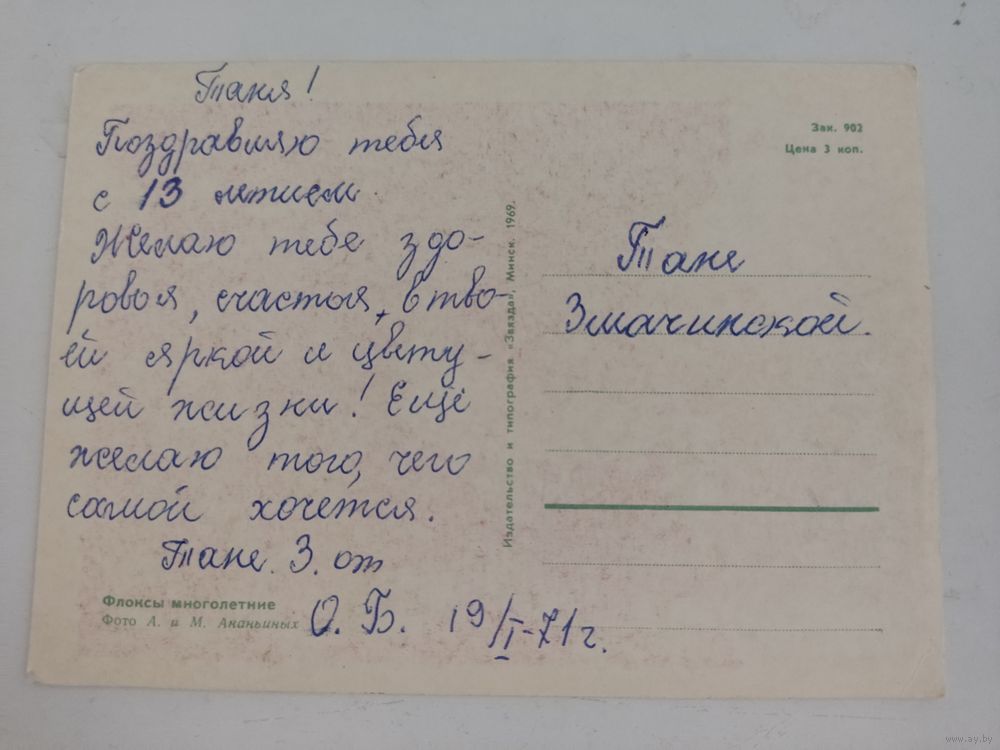 Таня!
Поздравляю тебя
с 13 летием.
Желаю тебе здо-
ровья, счастья, в тво-
ей яркой и цвету-
щей жизни! Ещё
желаю того, чего
самой хочется.
Тане. З. от
О. Б. 19/I-71 г.
Флоксы многолетние
Фото А. и М. Ананьиных
Издательство и типография «Звязда», Минск. 1969.
Зак. 902
Цена 3 коп.
Тане
Змачинской.
www.ay.by